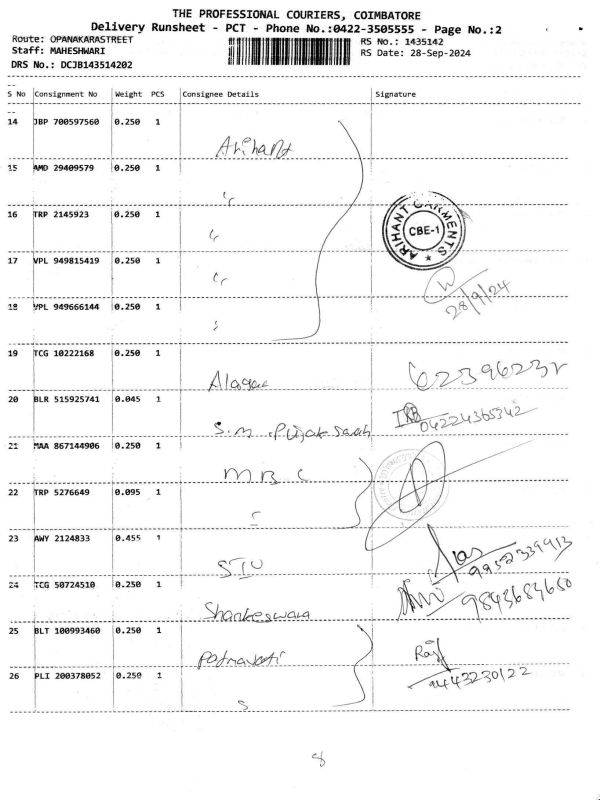 THE PROFESSIONAL COURIERS, COIMBATORE
Delivery Runsheet - PCT - Phone No.:0422-3505555 - Page No.:2
Route: OPANAKARASTREET
RS No.: 1435142
Staff: MAHESHWARI
RS Date: 28-Sep-2024
DRS No.: DCJB143514202
S No Consignment No Weight PCS Consignee Details Signature
14 JBP 700597560 0.250 1 Arihant
15 AMD 29409579 0.250 1 "
16 TRP 2145923 0.250 1 "
ARIHANT GARMENTS CBE-1
17 VPL 949815419 0.250 1 "
28/9/24
18 VPL 949666144 0.250 1
19 TCG 10222168 0.250 1
20 BLR 515925741 0.045 1 S.M.
04224365342
21 MAA 867144906 0.250 1 M B C
22 TRP 5276649 0.095 1
23 AWY 2124833 0.455 1
9952339913
24 TCG 50724510 0.250 1 Shankeswara
9843683650
25 BLT 100993460 0.250 1
26 PLI 200378052 0.250 1
9443230122
8